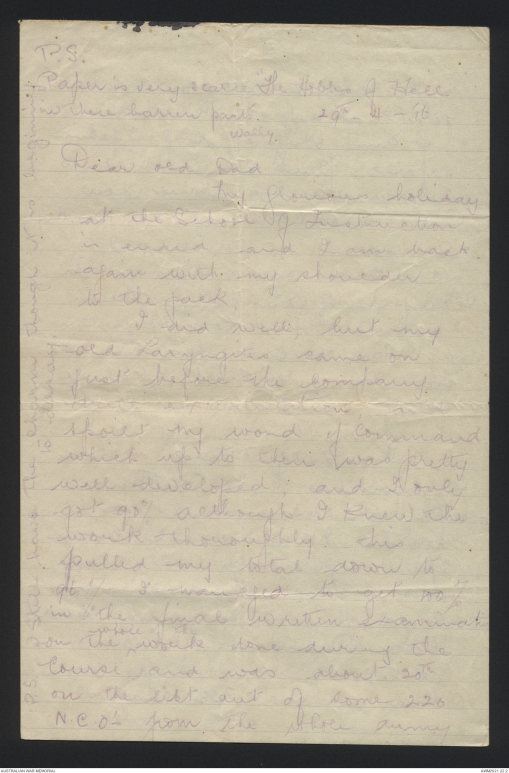 P.S.
Paper is very scarce The Lobbys of Hell
in these barren parts. 29th - 4 - 16
Wally
Dear old Dad
My glorious holiday
at the School of Instruction
is ended and I am back
again with my shoulder
to the pack.
I did well, but my
old Laryngitis came on
just before the Company
Drill examination, &
spoilt my word of Command
which up to then was pretty
well developed; and I only
got 90% although I knew the
work thoroughly. This
pulled my total down to
96%. I managed to get 100%
in the final written examinat
on the whole work done during the
Course, and was about 20th
on the list out of some 220
N.C.O's from the whole army
P.S. Still have the charm though it is beginning
AUSTRALIAN WAR MEMORIAL